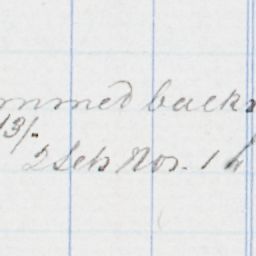 mmed back
13/-
2 Sets Nos. 1 &